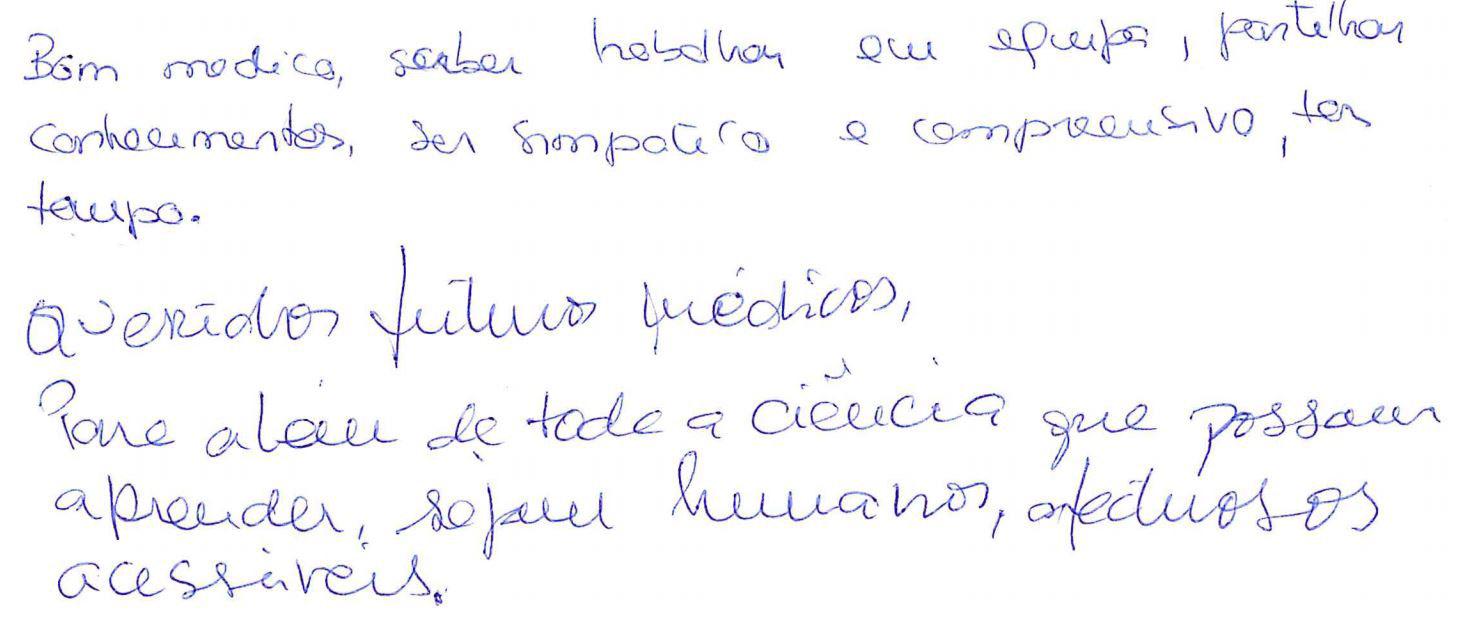 Bom medico, saber trabalhar em equipa, partilhar
conhecimentos, ser simpatico e compreensivo, ter
tempo.
Queridos futuros médicos,
Para além de toda a ciência que possam
aprender, sejam humanos, afectuosos
acessíveis.